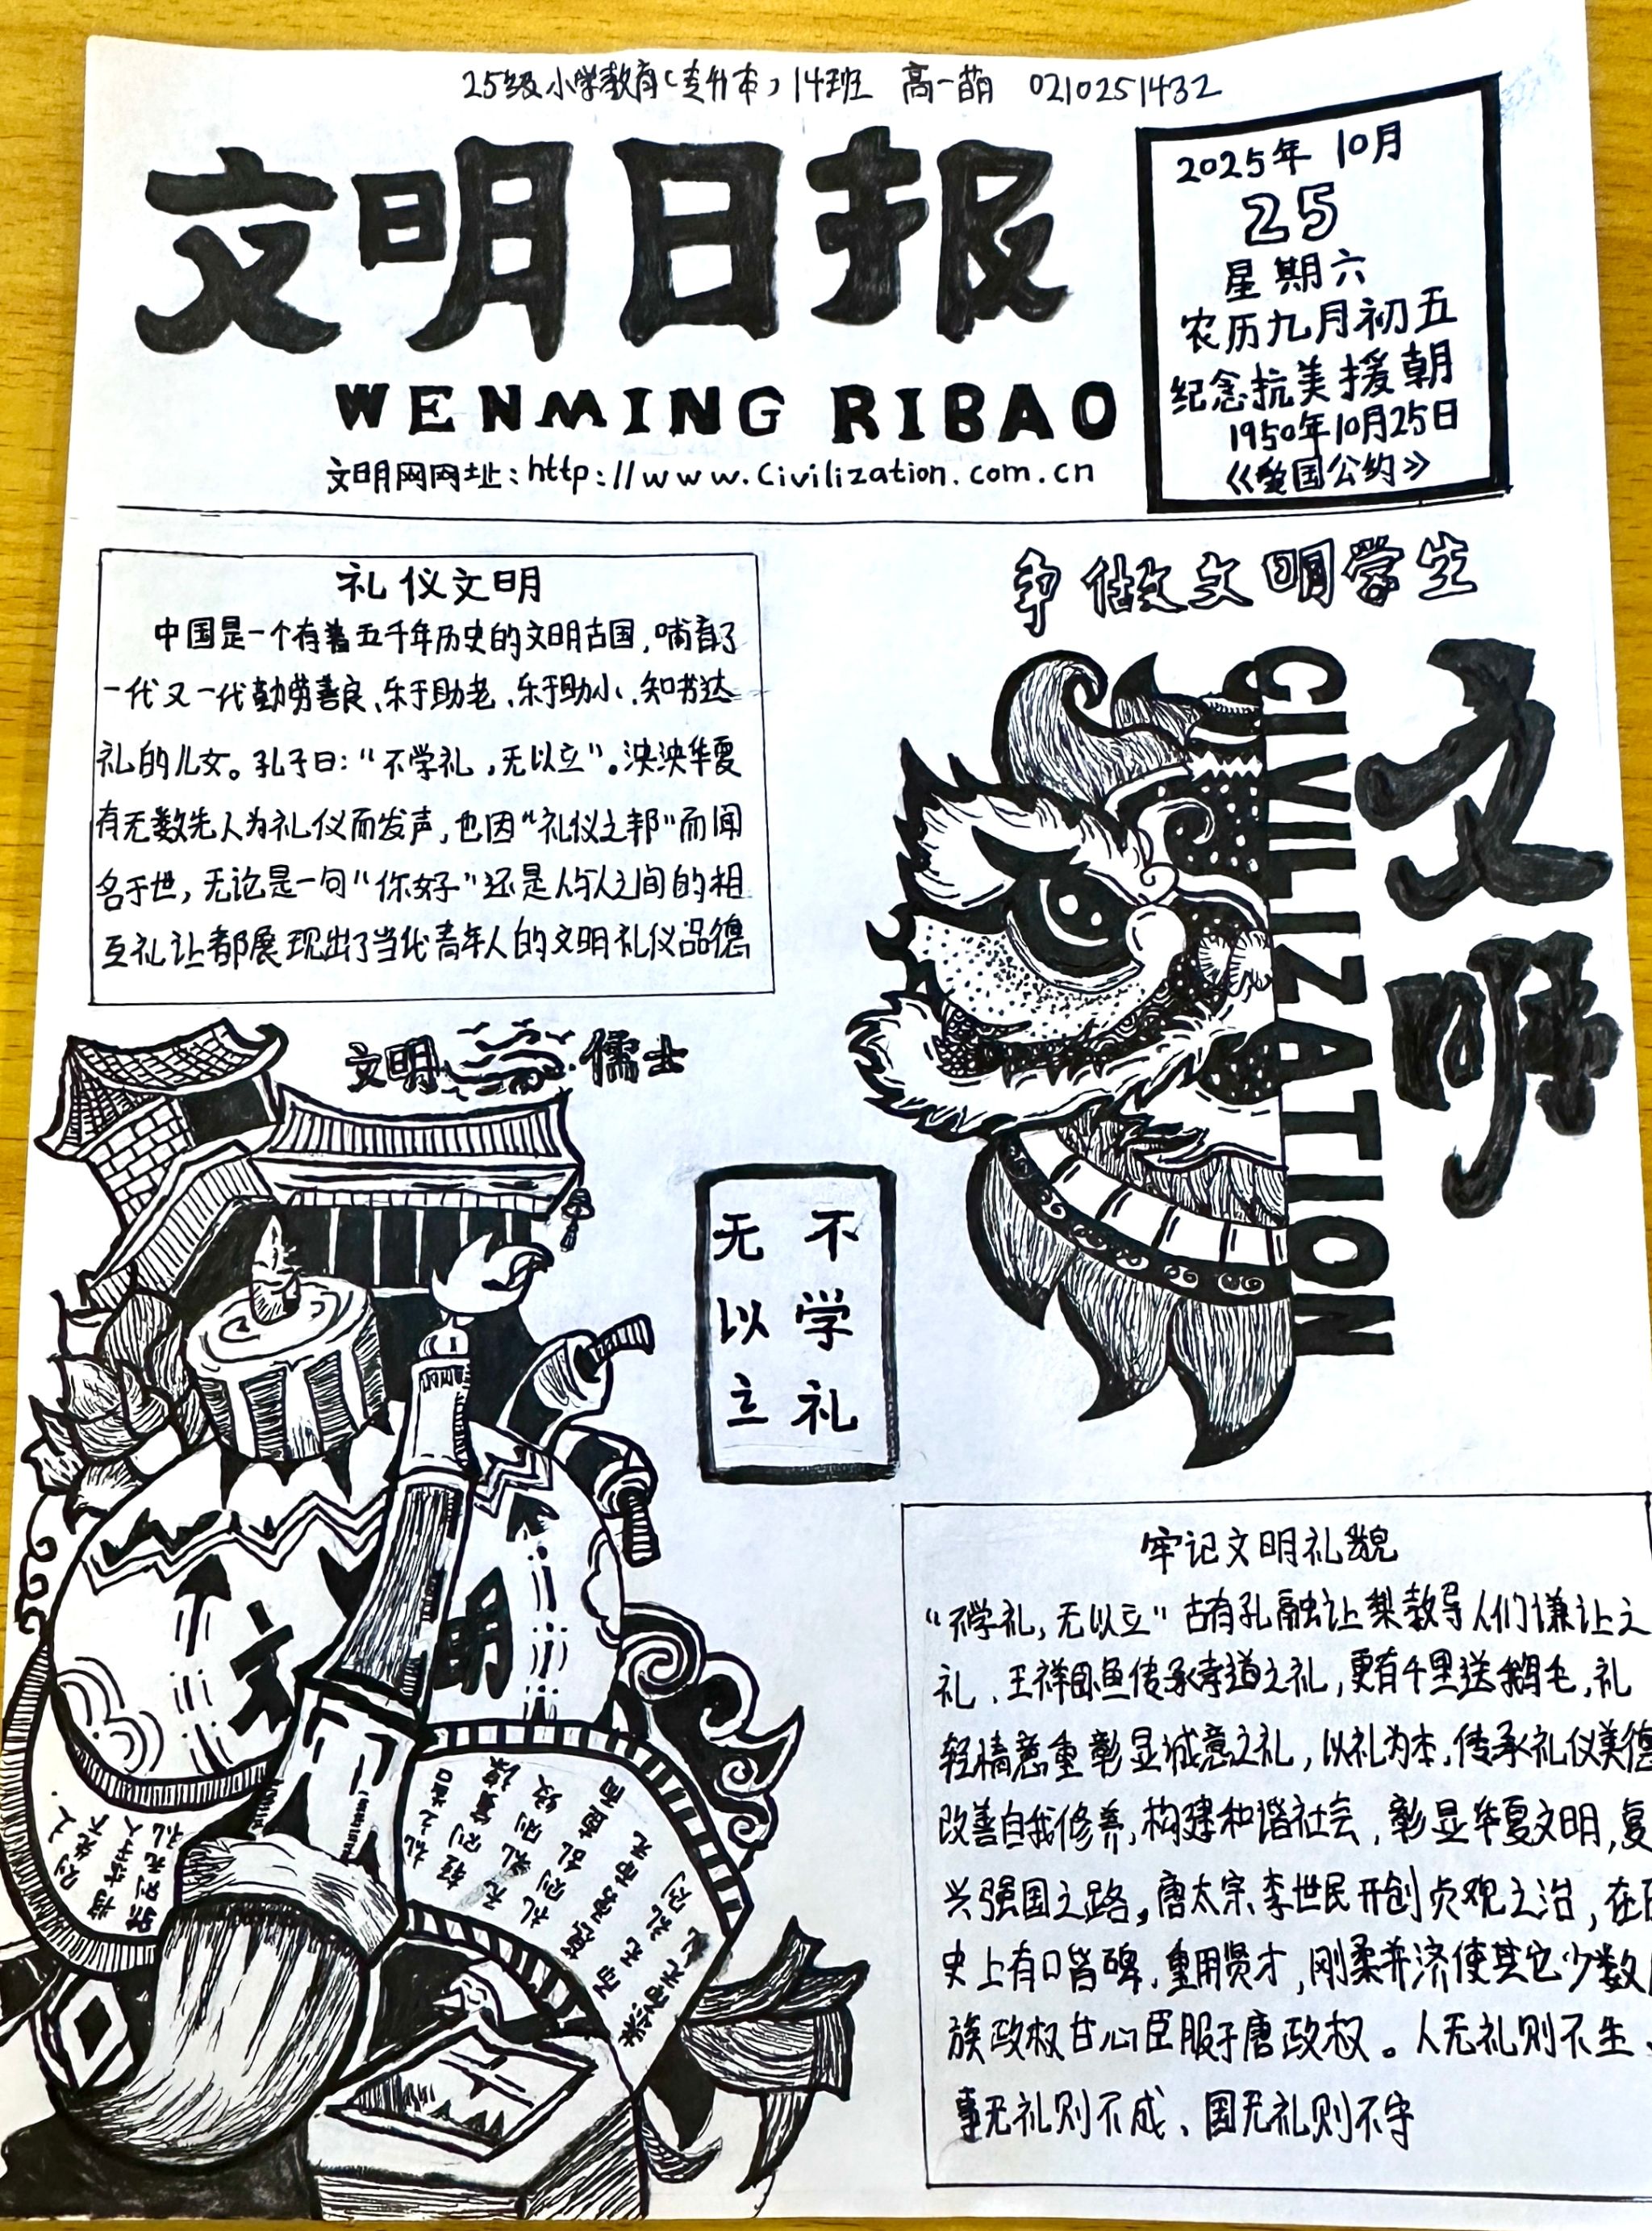 25级小学教育(专升本)14班 高一萌 0210251432
文明日报
WENMING RIBAO
文明网网址:http://www.Civilization.com.cn
2025年 10月
25
星期六
农历九月初五
纪念抗美援朝
1950年10月25日
《爱国公约》
礼仪文明
中国是一个有着五千年历史的文明古国,哺育了
一代又一代勤劳善良、乐于助老、乐于助小、知书达
礼的儿女。孔子曰:“不学礼,无以立”。泱泱华夏
有无数先人为礼仪而发声,也因“礼仪之邦”而闻
名于世,无论是一句“你好”还是人与人之间的相
互礼让都展现出了当代青年人的文明礼仪品德
争做文明学生
文明
CIVILIZATION
文明 儒士
不学礼
无以立
文明
牢记文明礼貌
“不学礼,无以立”古有孔融让梨教导人们谦让之
礼、王祥卧鱼传承孝道之礼,更有千里送鹅毛,礼
轻情意重彰显诚意之礼,以礼为本,传承礼仪美德
改善自我修养,构建和谐社会,彰显华夏文明,复
兴强国之路。唐太宗李世民开创贞观之治,在
史上有口皆碑,重用贤才,刚柔并济使其它少数
族政权甘心臣服于唐政权。人无礼则不生、
事无礼则不成、国无礼则不守